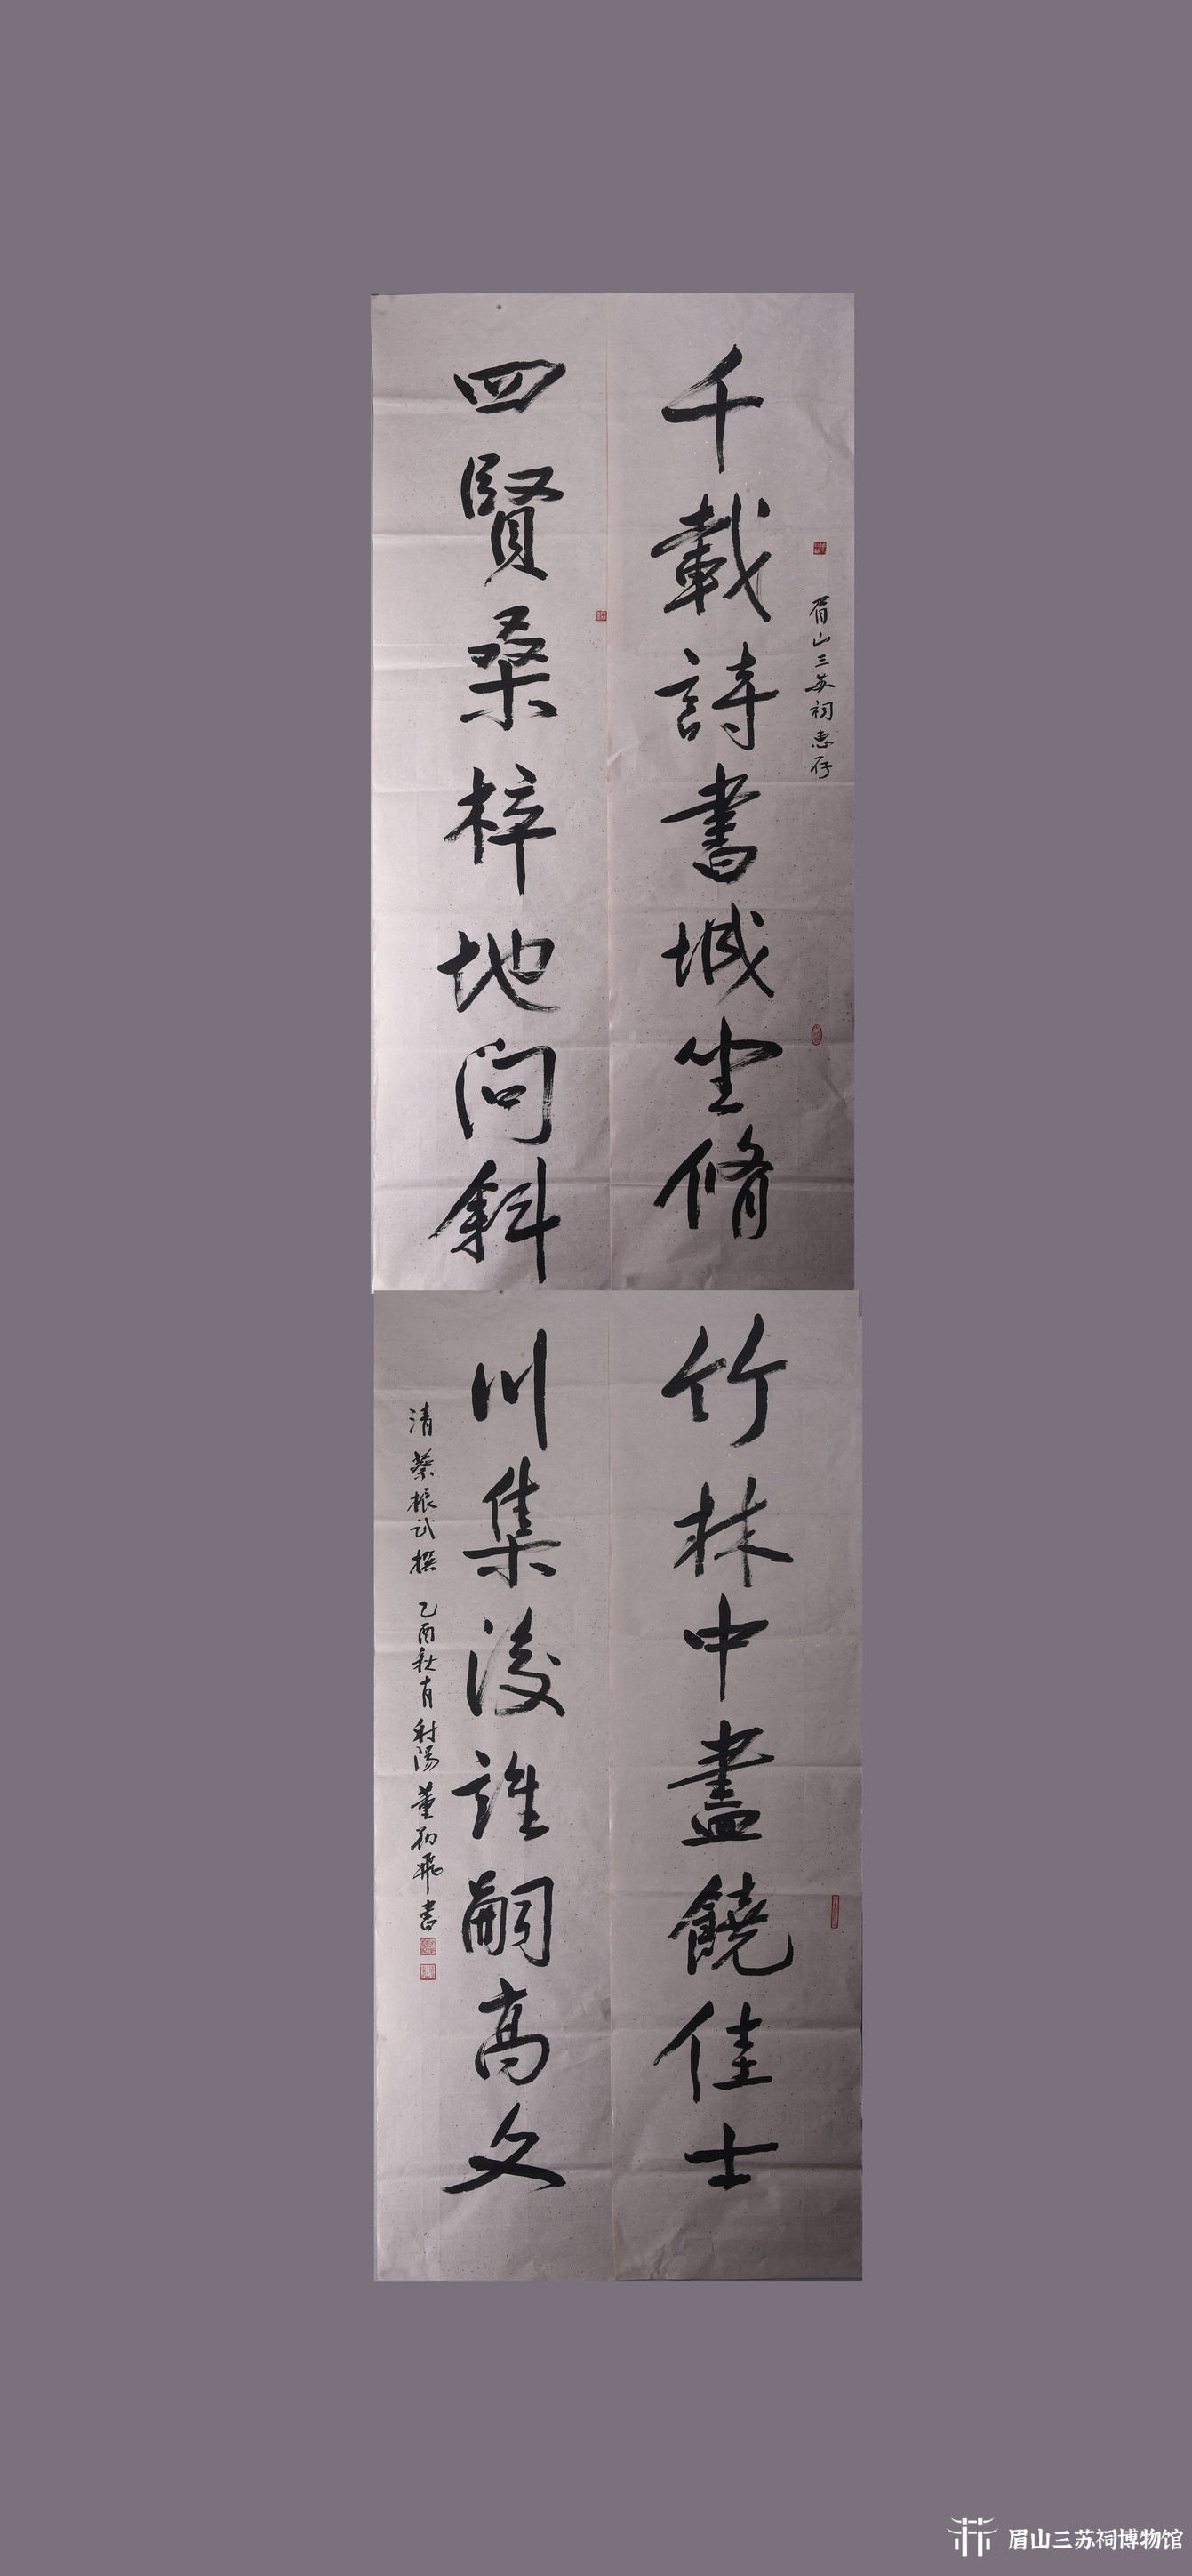 眉山三苏祠惠存
千載詩書城坐脩竹林中盡饒佳士
四賢桑梓地问斜川集後誰嗣高文
清蔡振武撰 乙酉秋月射陽董翔飛书
眉山三苏祠博物馆